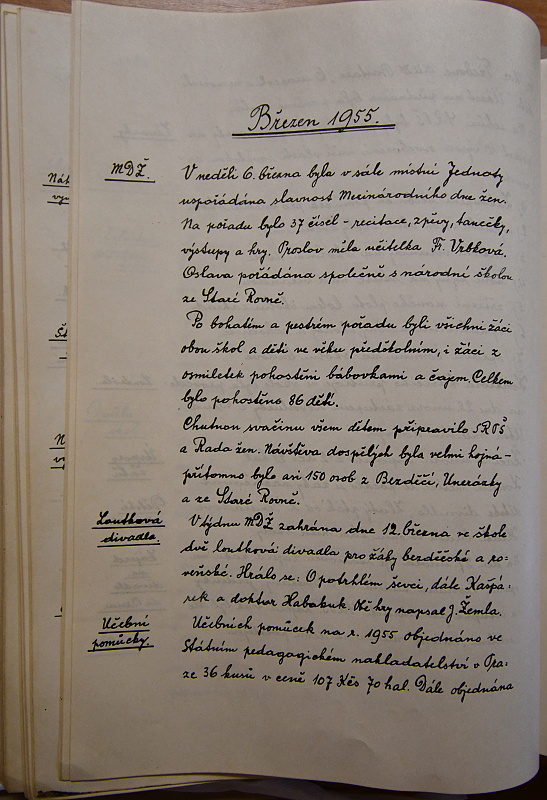 Březen 1955.
MDŽ.
V neděli 6. března byla v sále místní Jednoty
uspořádána slavnost Mezinárodního dne žen.
Na pořadu bylo 37 čísel - recitace, zpěvy, tanečky,
výstupy a hry. Proslov měla učitelka Fr. Vrbková.
Oslava pořádána společně s národní školou
ze Staré Rovně.
Po bohatém a pestrém pořadu byli všichni žáci
obou škol a děti ve věku předškolním, i žáci z
osmiletek pohostěni bábovkami a čajem. Celkem
bylo pohostěno 86 dětí.
Chutnou svačinu všem dětem připravilo SRPŠ
a Rada žen. Návštěva dospělých byla velmi hojná -
přítomno bylo asi 150 osob z Bezděčí, Unerázky
a ze Staré Rovně.
Loutková
divadla.
V týdnu MDŽ zahrána dne 12. března ve škole
dvě loutková divadla pro žáky bezděčské a ro-
veňské. Hrálo se: O potrhlém ševci, dále Kašpá-
rek a doktor Habakuk. Obě hry napsal J. Žemla.
Učební
pomůcky.
Učebních pomůcek na r. 1955 objednáno ve
Státním pedagogickém nakladatelství v Pra-
ze 36 kusů v ceně 107 Kčs 70 hal. Dále objednána